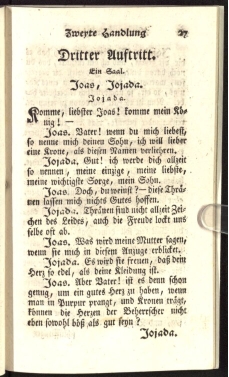 Zweyte Handlung 27
Dritter Auftritt.
Ein Saal.
Joas, Jojada.
Jojada.
Komme, liebster Joas! komme mein Kö-
nig! —
Joas. Vater! wenn du mich liebest,
so nenne mich deinen Sohn, ich will lieber
eine Krone, als diesen Namen verliehren.
Jojada. Gut! ich werde dich allzeit
so nennen, meine einzige, meine liebste,
meine wichtigste Sorge, mein Sohn.
Joas. Doch, du weinst? — diese Thrä-
nen lassen mich nichts Gutes hoffen.
Jojada. Thränen sind nicht allzeit Zei-
chen des Leides, auch die Freude lockt uns
selbe oft ab.
Joas. Was wird meine Mutter sagen,
wenn sie mich in diesem Anzuge erblicket.
Jojada. Es wird sie freuen, daß dein
Herz so edel, als deine Kleidung ist.
Joas. Aber Vater! ist es denn schon
genug, um ein gutes Herz zu haben, wenn
man in Purpur prangt, und Kronen trägt,
können die Herzen der Beherrscher nicht
eben sowohl böß als gut seyn?
Jojada.